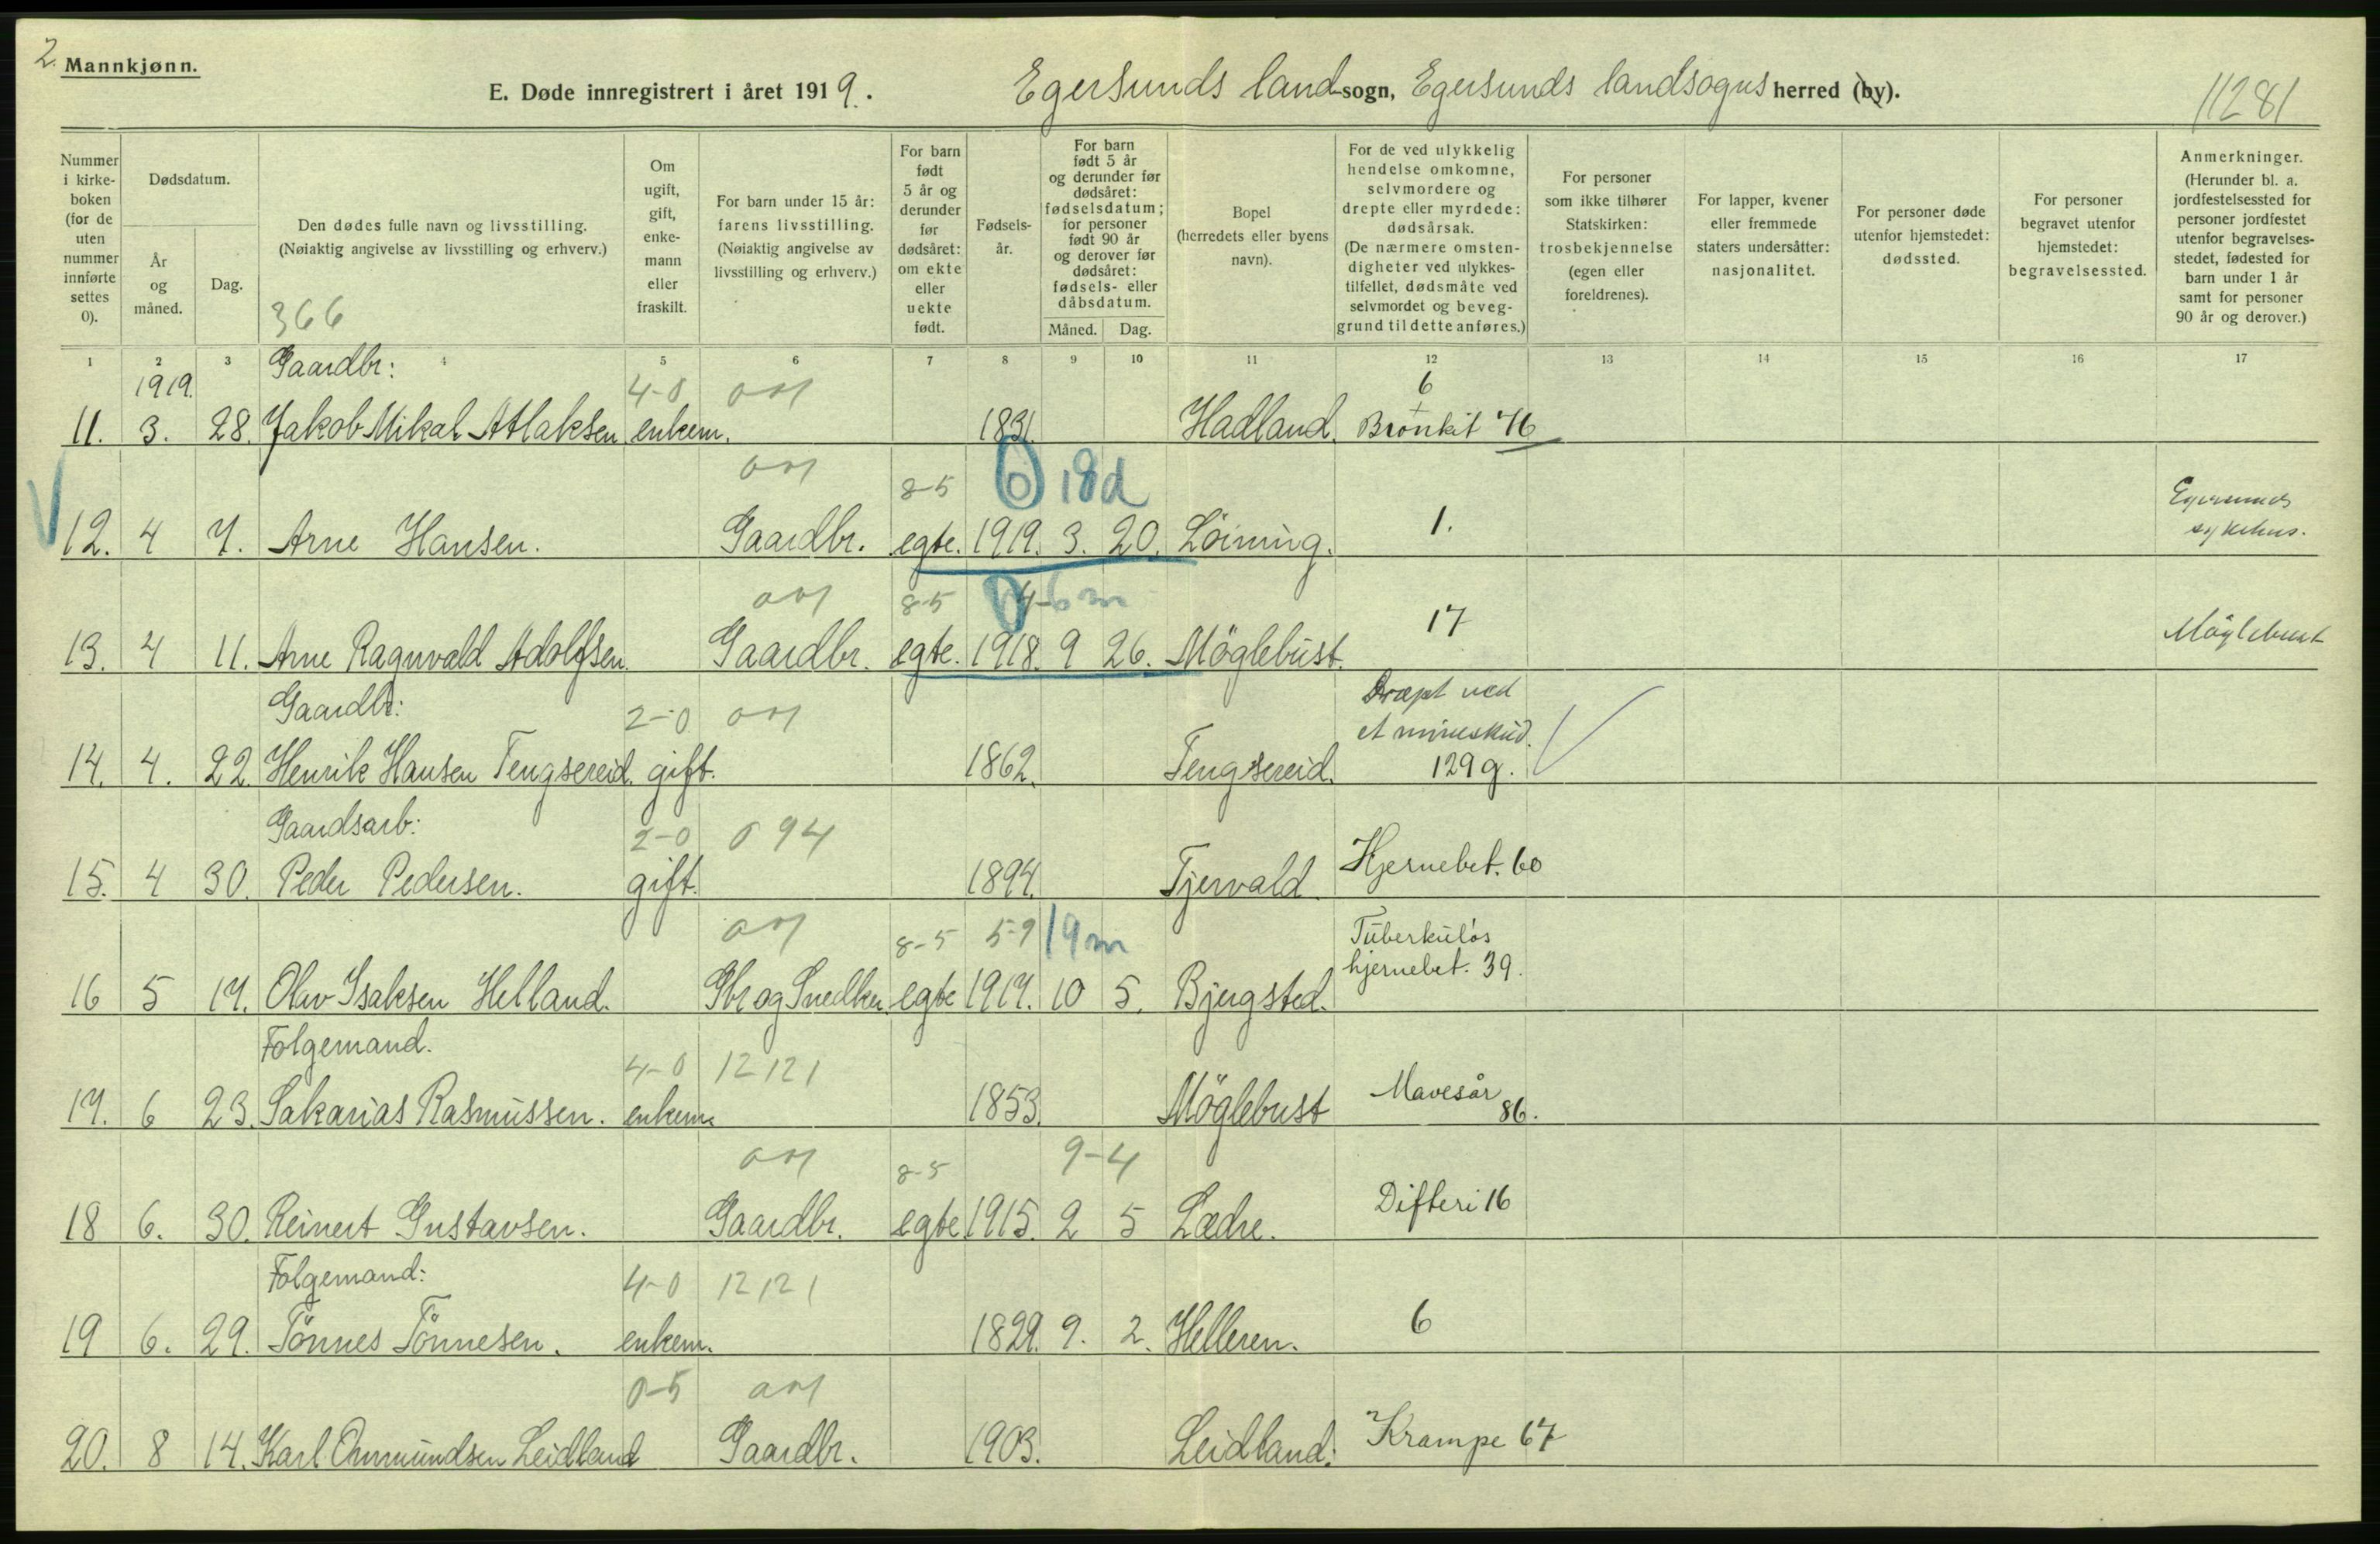 2.
Mannkjønn.
E. Døde innregistrert i året 1919. Egersunds landsogn, Egersunds landsogns herred (by).
11281
Nummer i kirkeboken (for de uten nummer innførte settes 0).
Dødsdatum.
År og måned.
Dag.
Den dødes fulle navn og livsstilling.
(Nøiaktig angivelse av livsstilling og erhverv.)
366
Om ugift, gift, enkemann eller fraskilt.
For barn under 15 år: farens livsstilling. (Nøiaktig angivelse av livsstilling og erhverv.)
For barn født 5 år og derunder før dødsåret: om ekte eller uekte født.
Fødselsår.
For barn født 5 år og derunder før dødsåret: fødselsdatum; for personer født 90 år og derover før dødsåret: fødsels- eller dåbsdatum.
Måned. Dag.
Bopel (herredets eller byens navn).
For de ved ulykkelig hendelse omkomne, selvmordere og drepte eller myrdede: dødsårsak. (De nærmere omstendigheter ved ulykkestilfellet, dødsmåte ved selvmordet og beveggrund til dette anføres.)
For personer som ikke tilhører Statskirken: trosbekjennelse (egen eller foreldrenes).
For lapper, kvener eller fremmede staters undersåtter: nasjonalitet.
For personer døde utenfor hjemstedet: dødssted.
For personer begravet utenfor hjemstedet: begravelsessted.
Anmerkninger. (Herunder bl. a. jordfestelsessted for personer jordfestet utenfor begravelsesstedet, fødested for barn under 1 år samt for personer 90 år og derover.)
1 2 3 4 5 6 7 8 9 10 11 12 13 14 15 16 17
1919. Gaardbr: 4-0 6
11. 3. 28. Jakob Mikal Atlaksen enkem. 1831. Hadland. Bronkit 76
8-5 0 18d
12. 4 7. Arne Hansen. Gaardbr. egte. 1919. 3. 20. Löining. 1. Egersunds sykehus.
8-5 6 m
13. 4 11. Arne Ragnvald Adolfsen. Gaardbr. egte. 1918. 9 26. Möglebust. 17 Möglebust
Gaardbr: 2-0 Dræpt ved et mineskud.
14. 4. 22. Henrik Hansen Tengsereid. gift. 1862. Tengsereid. 129g.
Gaardsarb: 2-0 0 94
15. 4 30. Peder Pedersen. gift. 1894. Tjervald Hjernebet. 60
8-5 5-9 19m Tüberkulös hjernebet. 39.
16 5 17. Olav Isaksen Helland. Gbr og Snedker. egte 1917. 10 5. Bjergsted.
Folgemand. 4-0 12 12 1
17. 6 23. Sakarias Rasmussen. enkem. 1853. Möglebust Mavesår 86.
8-5 9-4
18 6. 30. Reinert Gustavsen. Gaardbr. egte. 1915. 2 5 Lædre. Difteri 16
Folgemand: 4-0 12 12 1
19 6. 29. Tönnes Tönnesen. enkem. 1829. 9. 2. Helleren. 6
0-5
20. 8 14. Karl Ommundsen Leidland Gaardbr. 1903. Leidland. Krampe 67